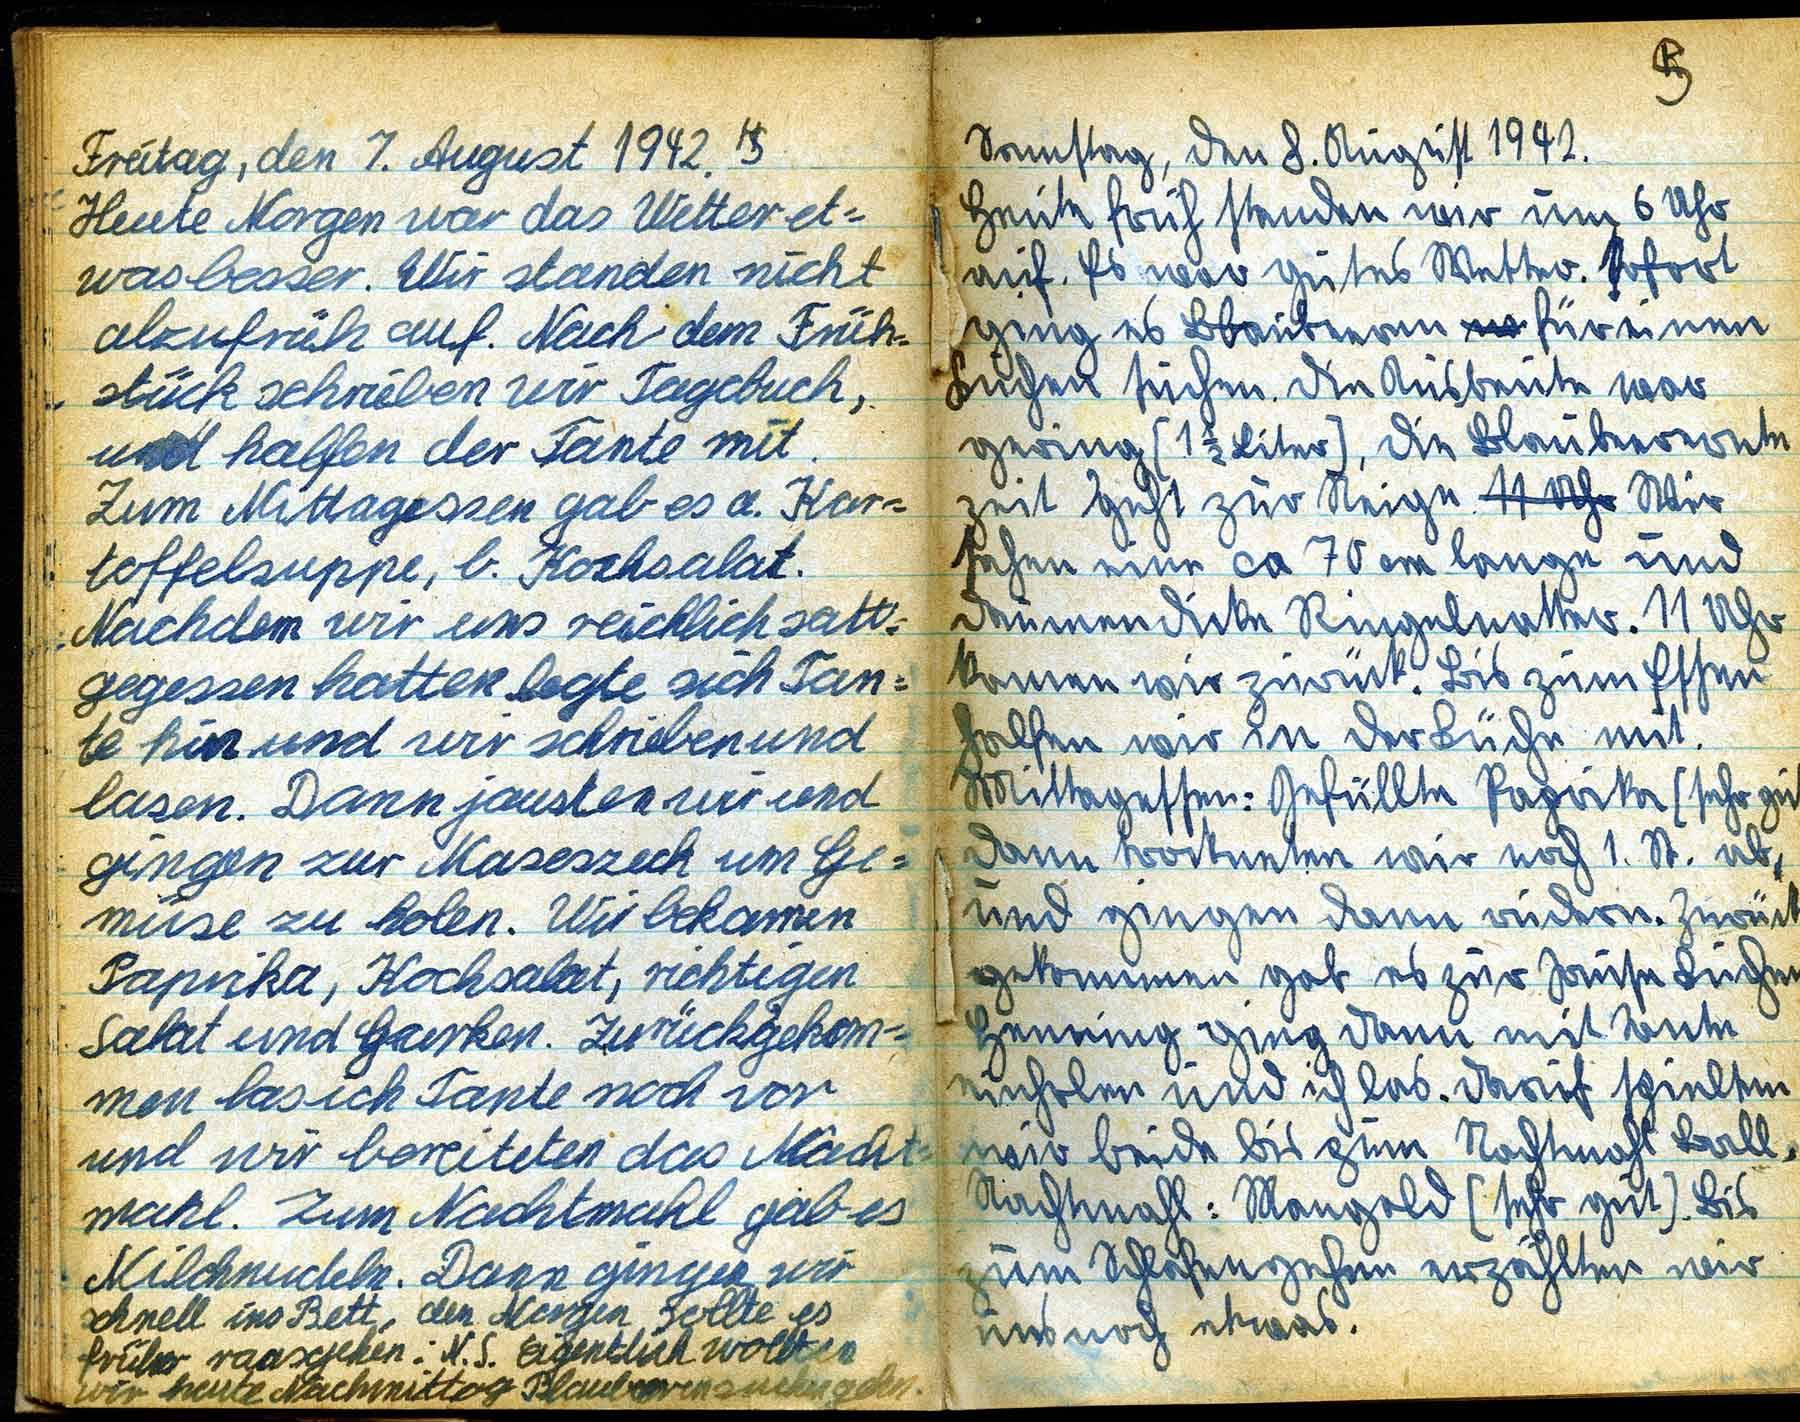 Freitag, den 7. August 1942.
Heute Morgen war das Wetter et=
was besser. Wir standen nicht
alzufrüh auf. Nach dem Früh=
stück schrieben wir Tagebuch,
und halfen der Tante mit.
Zum Mittagessen gab es a. Kar=
toffelsuppe, b. Kochsalat.
Nachdem wir uns reichlich satt=
gegessen hatten legte sich Tan=
te hin und wir schrieben und
lasen. Dann jausten wir und
gingen zur Maseszech um Ge=
müse zu holen. Wir bekamen
Paprika, Kochsalat, richtigen
Salat und Gurken. Zurückgekom=
men las ich Tante noch vor
und wir bereiteten das Nacht=
mahl. Zum Nachtmahl gab es
Milchnudeln. Dann gingen wir
schnell ins Bett, den Morgen sollte es
früher rausgehen: N.S. Eigentlich wollten
wir heute Nachmittag Blaubeeren suchen gehn.
Samstag, den 8. August 1942.
Heute früh standen wir um 6 Uhr
auf. Es war gutes Wetter. Sofort
ging es Blaubeeren für einen
Kuchen suchen. Die Ausbeute war
gering (1 1/2 Liter), die Blaubeerernte
zeit geht zur Neige. 11 Uhr Wir
sahen eine ca 70 cm lange und
daumendicke Ringelnatter. 11 Uhr
kamen wir zurück. Bis zum Essen
halfen wir in der Küche mit.
Mittagessen: Gefüllte Paprika (sehr gut
dann trockneten wir noch 1. St. ab,
und gingen dann rudern. Zurück
gekommen gab es zur Jause Kuchen
Henning ging dann mit Tante
einholen und ich las. Darauf spielten
wir beide bis zum Nachtmahl Ball.
Nachtmahl: Mangold (sehr gut). Bis
zum Schlafengehen erzählten wir
uns noch etwas.